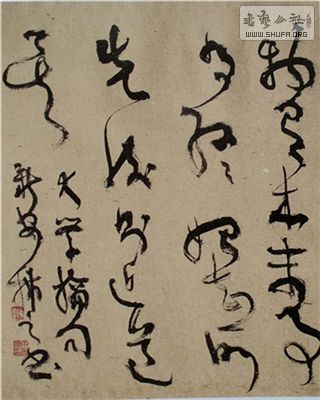 物有本末事
有終始知所
先後則近道
矣
大学摘句
書
书艺公社
WWW.SHUFA.ORG